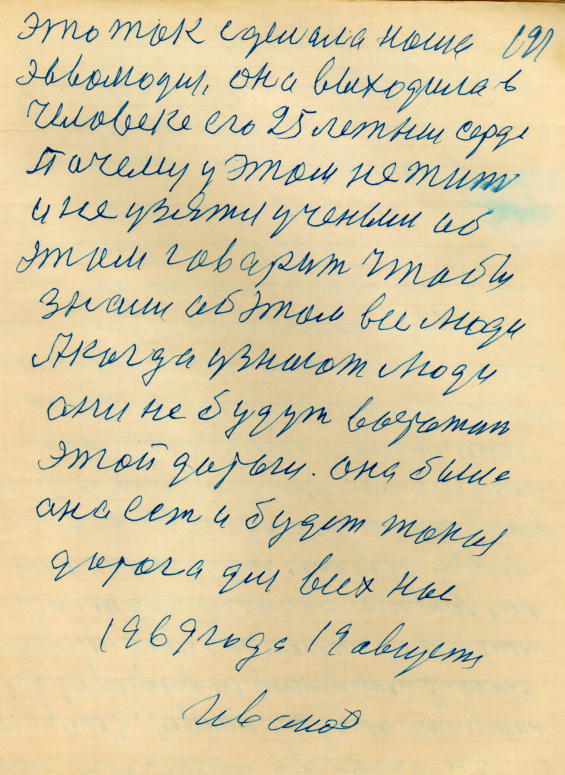 это так сделала наша 191
Эвволюция, она выходила в
человеке его 25 летнии серде
Почему у этом не жит
и не узяти ученыи об
этом говарит чтобы
знали об этом все люди
А когда узнают люди
они не будут
этой дароги. она была
она ест и будет такая
дарога для всех нас
1969 года 19 август
Иванов